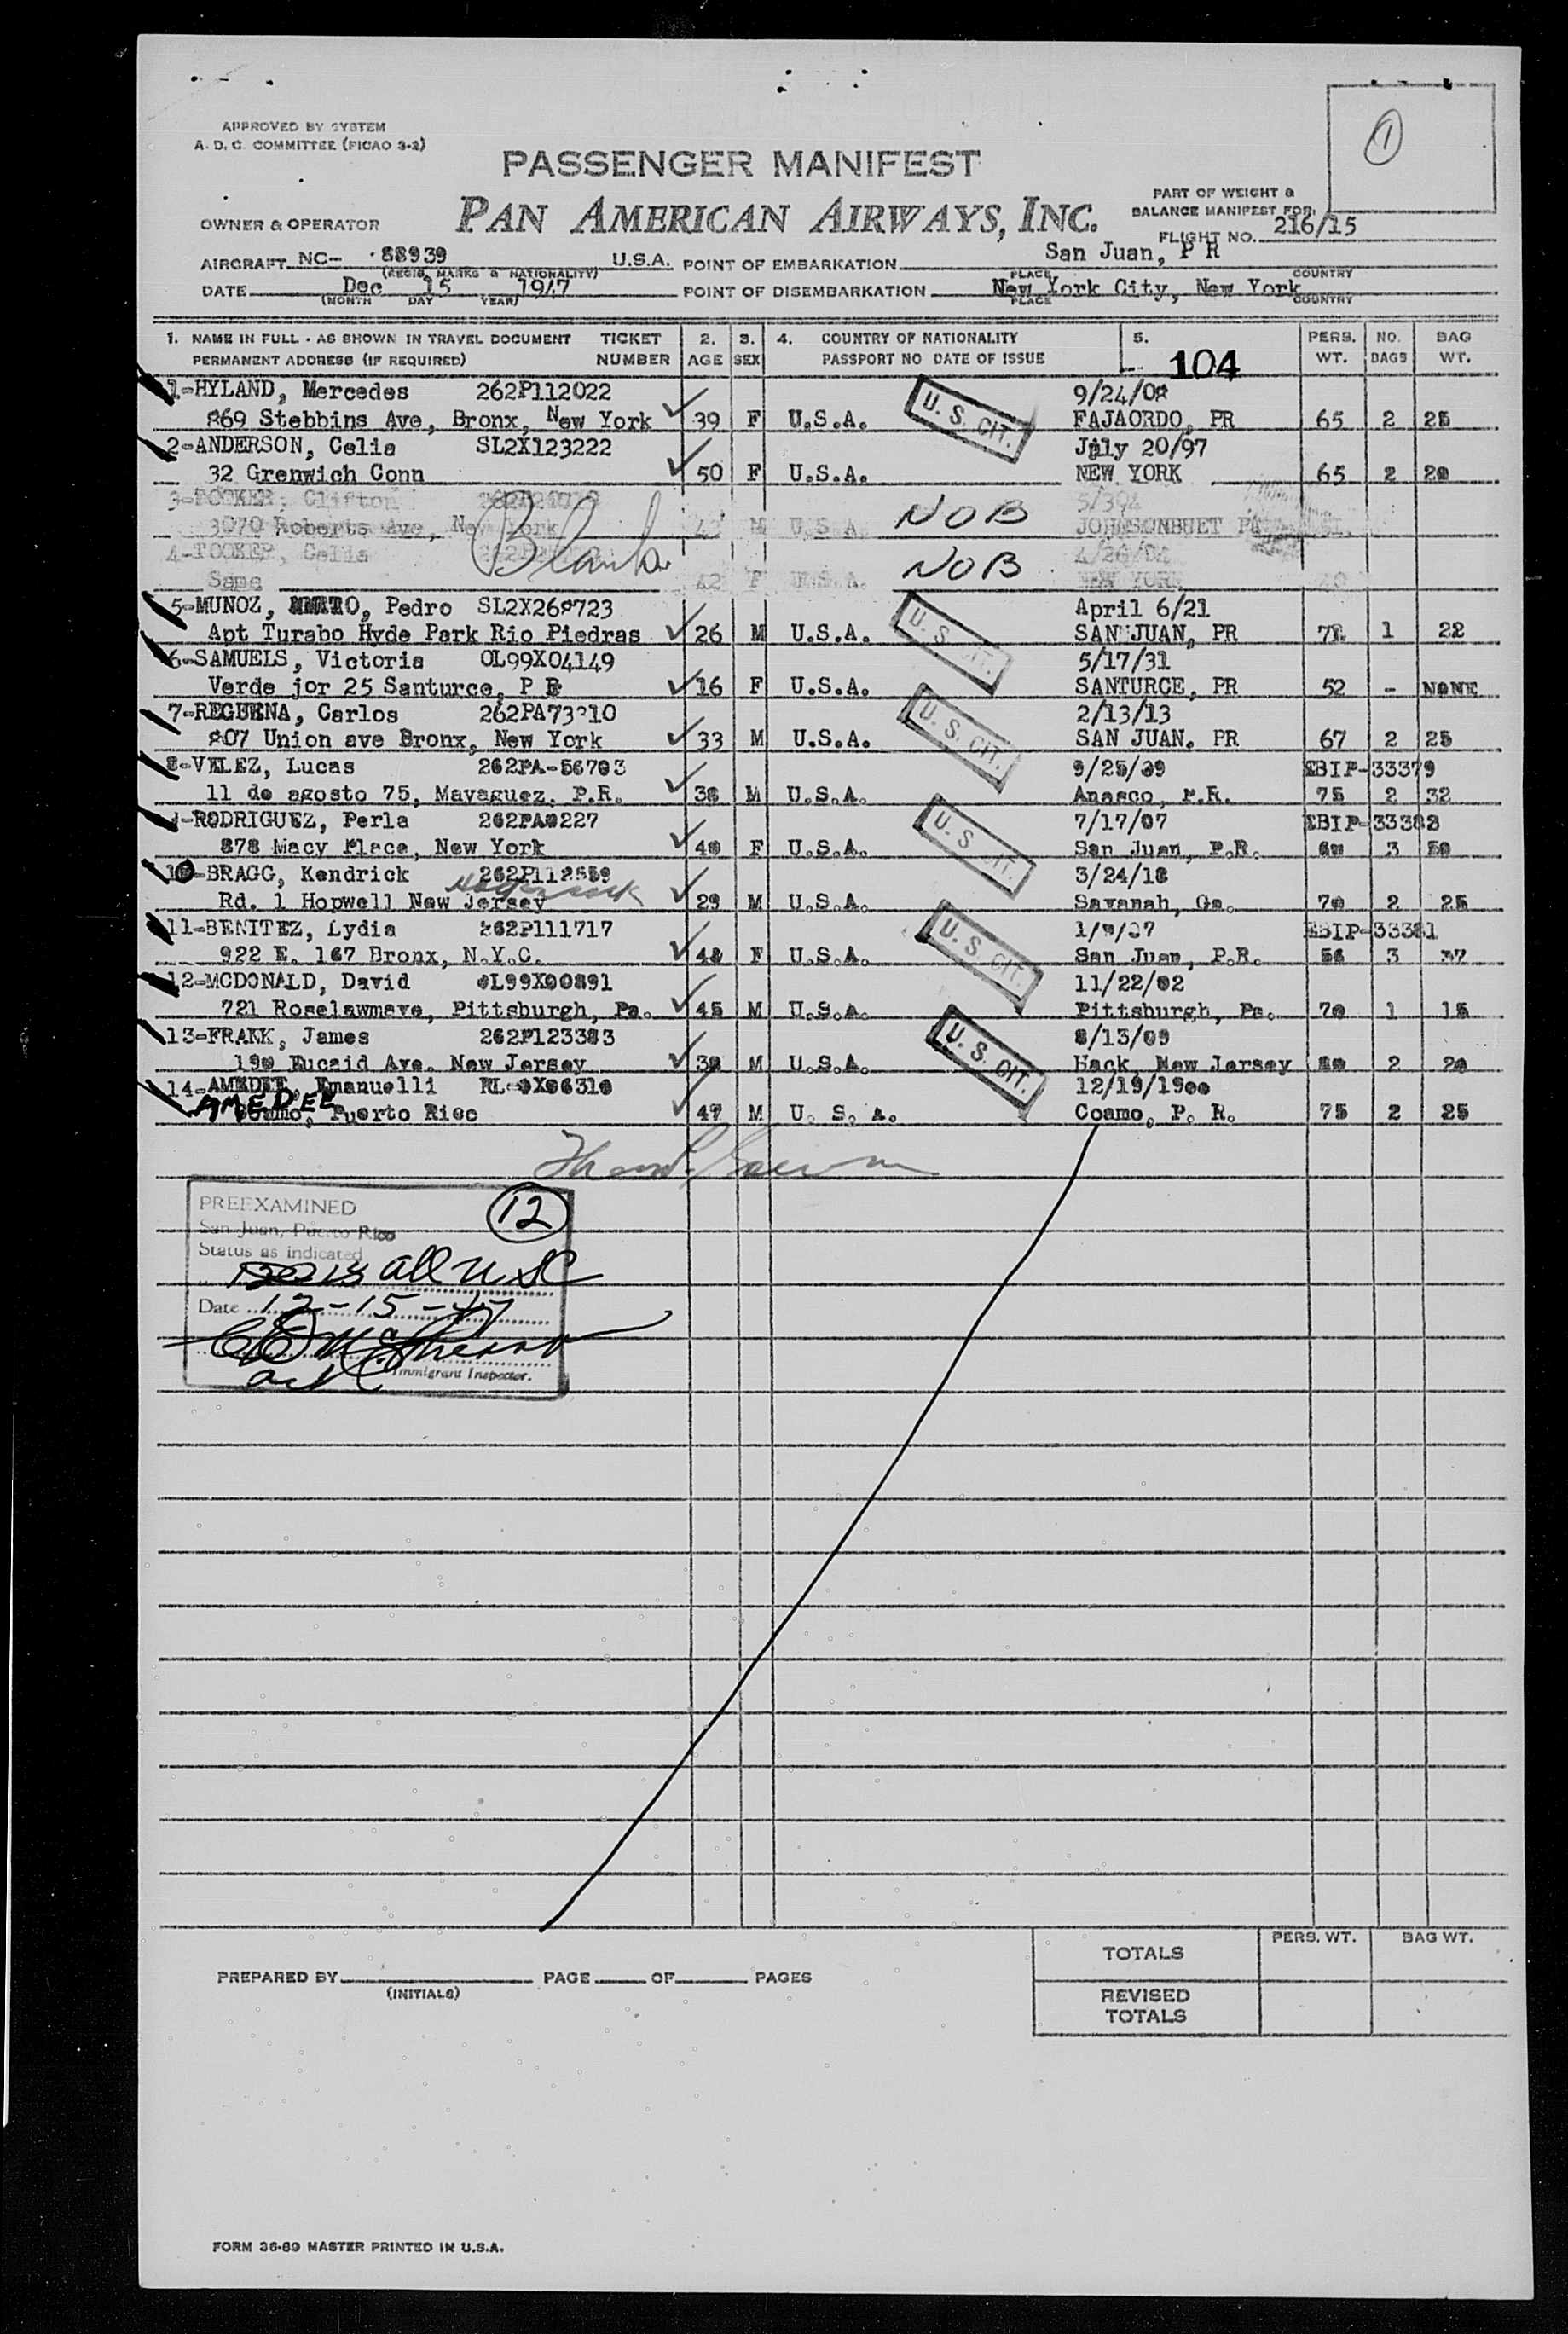 1
APPROVED BY SYSTEM
A. D. C. COMMITTEE (PICAO 3-2)
PASSENGER MANIFEST
PART OF WEIGHT &
BALANCE MANIFEST FOR
OWNER & OPERATOR
PAN AMERICAN AIRWAYS, INC.
FLIGHT NO. 216/15
AIRCRAFT NC- 88939 U.S.A. POINT OF EMBARKATION San Juan, P R
(REGIS. MARKS & NATIONALITY) PLACE COUNTRY
DATE Dec 15 1947 POINT OF DISEMBARKATION New York City, New York
(MONTH DAY YEAR) PLACE COUNTRY
1. NAME IN FULL - AS SHOWN IN TRAVEL DOCUMENT TICKET 2. 3. 4. COUNTRY OF NATIONALITY 5. PERS. NO. BAG
PERMANENT ADDRESS (IF REQUIRED) NUMBER AGE SEX PASSPORT NO DATE OF ISSUE 104 WT. BAGS WT.
1-HYLAND, Mercedes 262P112022 9/24/08
869 Stebbins Ave, Bronx, New York 39 F U.S.A. U. S. CIT. FAJAORDO, PR 65 2 25
2-ANDERSON, Celia SL2X123222 July 20/97
32 Grenwich Conn 50 F U.S.A. NEW YORK 65 2 20
3-TOOKER, Clifton
3070 Roberts Ave, New York M U.S.A. NOB
4-TOOKER, Celia 4/26/04
Same 42 F U.S.A. NOB NEW YORK
5-MUNOZ, Pedro SL2X268723 April 6/21
Apt Turabo Hyde Park Rio Piedras 26 M U.S.A. U. S. CIT. SAN JUAN, PR 1 22
6-SAMUELS, Victoria OL99X04149 5/17/31
Verde jor 25 Santurce, P R 16 F U.S.A. SANTURCE, PR 52 - NONE
7-REGUENA, Carlos 2/13/13
807 Union ave Bronx, New York 33 M U.S.A. U. S. CIT. SAN JUAN. PR 67 2 25
8-VELEZ, Lucas 262PA-56703 9/25/09 EBIP-33379
11 de agosto 75, Mayaguez, P.R. 38 M U.S.A. Anasco, P.R. 75 2 32
-RODRIGUEZ, Perla 262PA0227 7/17/07
878 Macy Place, New York 40 F U.S.A. U. S. CIT. San Juan, P.R. 3
10-BRAGG, Kendrick 3/24/18
Rd. 1 Hopwell New Jersey 29 M U.S.A. Savanah, Ga. 70 2 25
11-BENITEZ, Lydia 262P111717 EBIP-33381
922 E. 167 Bronx, N.Y.C. F U.S.A. U. S. CIT. San Juan, P.R. 3
12-MCDONALD, David 0L99X00891 11/22/02
721 Roselawmave, Pittsburgh, Pa. 45 M U.S.A. Pittsburgh, Pa. 70 1 15
13-FRANK, James 262P123383 8/13/09
190 Eucaid Ave. New Jersey 38 M U.S.A. U. S. CIT. Hack, New Jersey 2 20
14-AMEDEE, Emanuelli 12/19/1900
AMEDEE Coamo, Puerto Rico 47 M U. S. A. Coamo, P. R. 75 2 25
PREEXAMINED 12
San Juan, Puerto Rico
Status as indicated
all USC
Date 12-15-47
Immigrant Inspector.
TOTALS PERS. WT. BAG WT.
PREPARED BY PAGE OF PAGES
(INITIALS)
REVISED
TOTALS
FORM 36-89 MASTER PRINTED IN U.S.A.